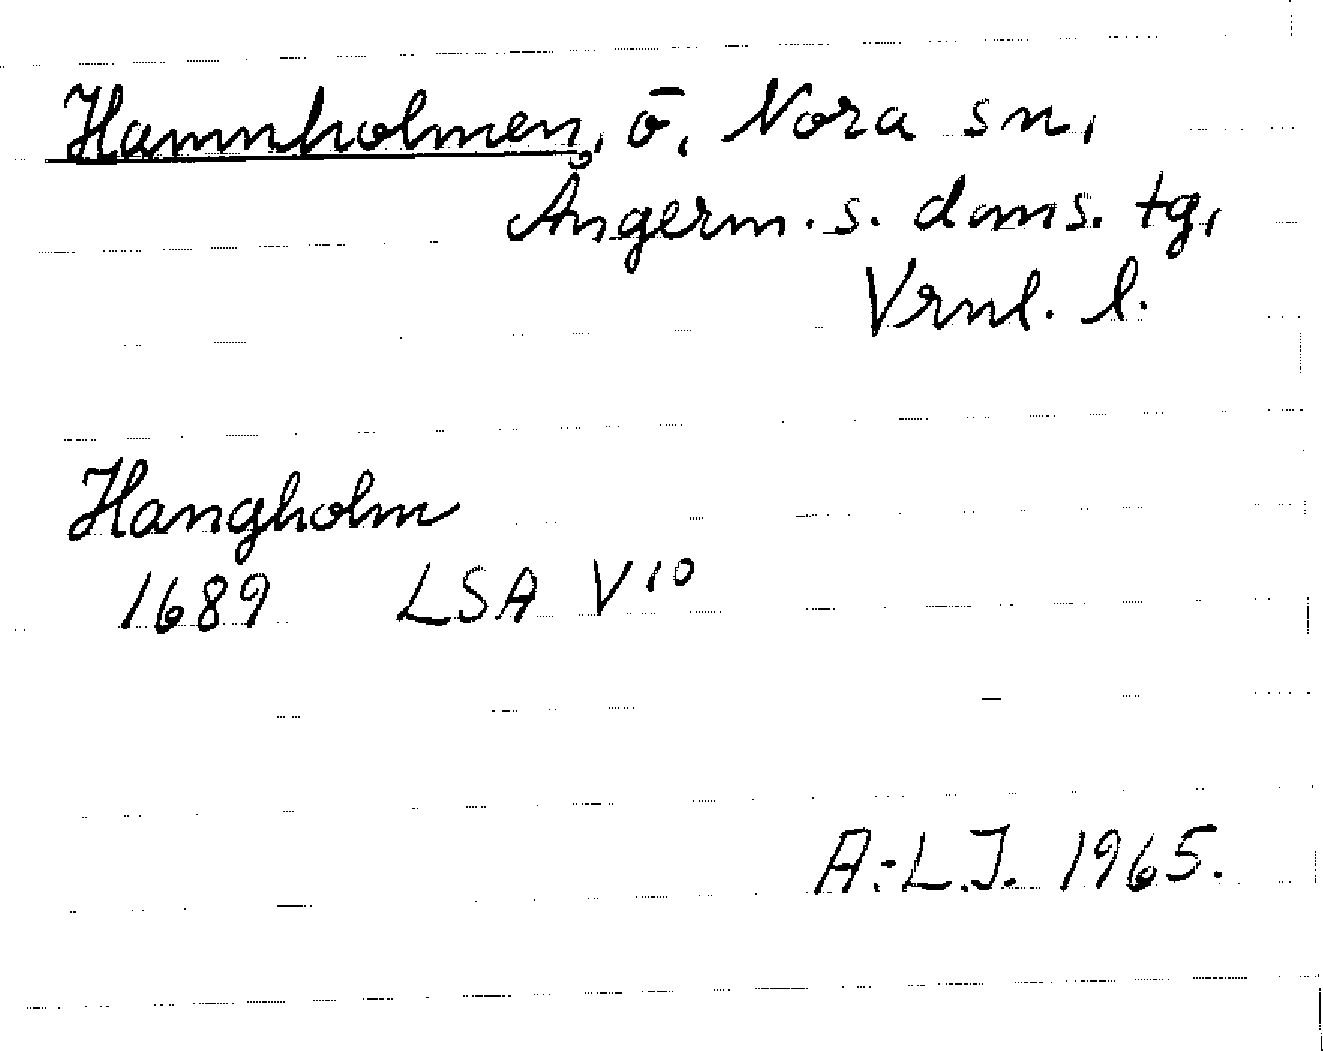 Hamnholmen, ö, Nora sn,
Ångerm. s. doms. tg,
Vrnl. l.
Hangholm
1689 LSA V 10
A.-L.J. 1965.